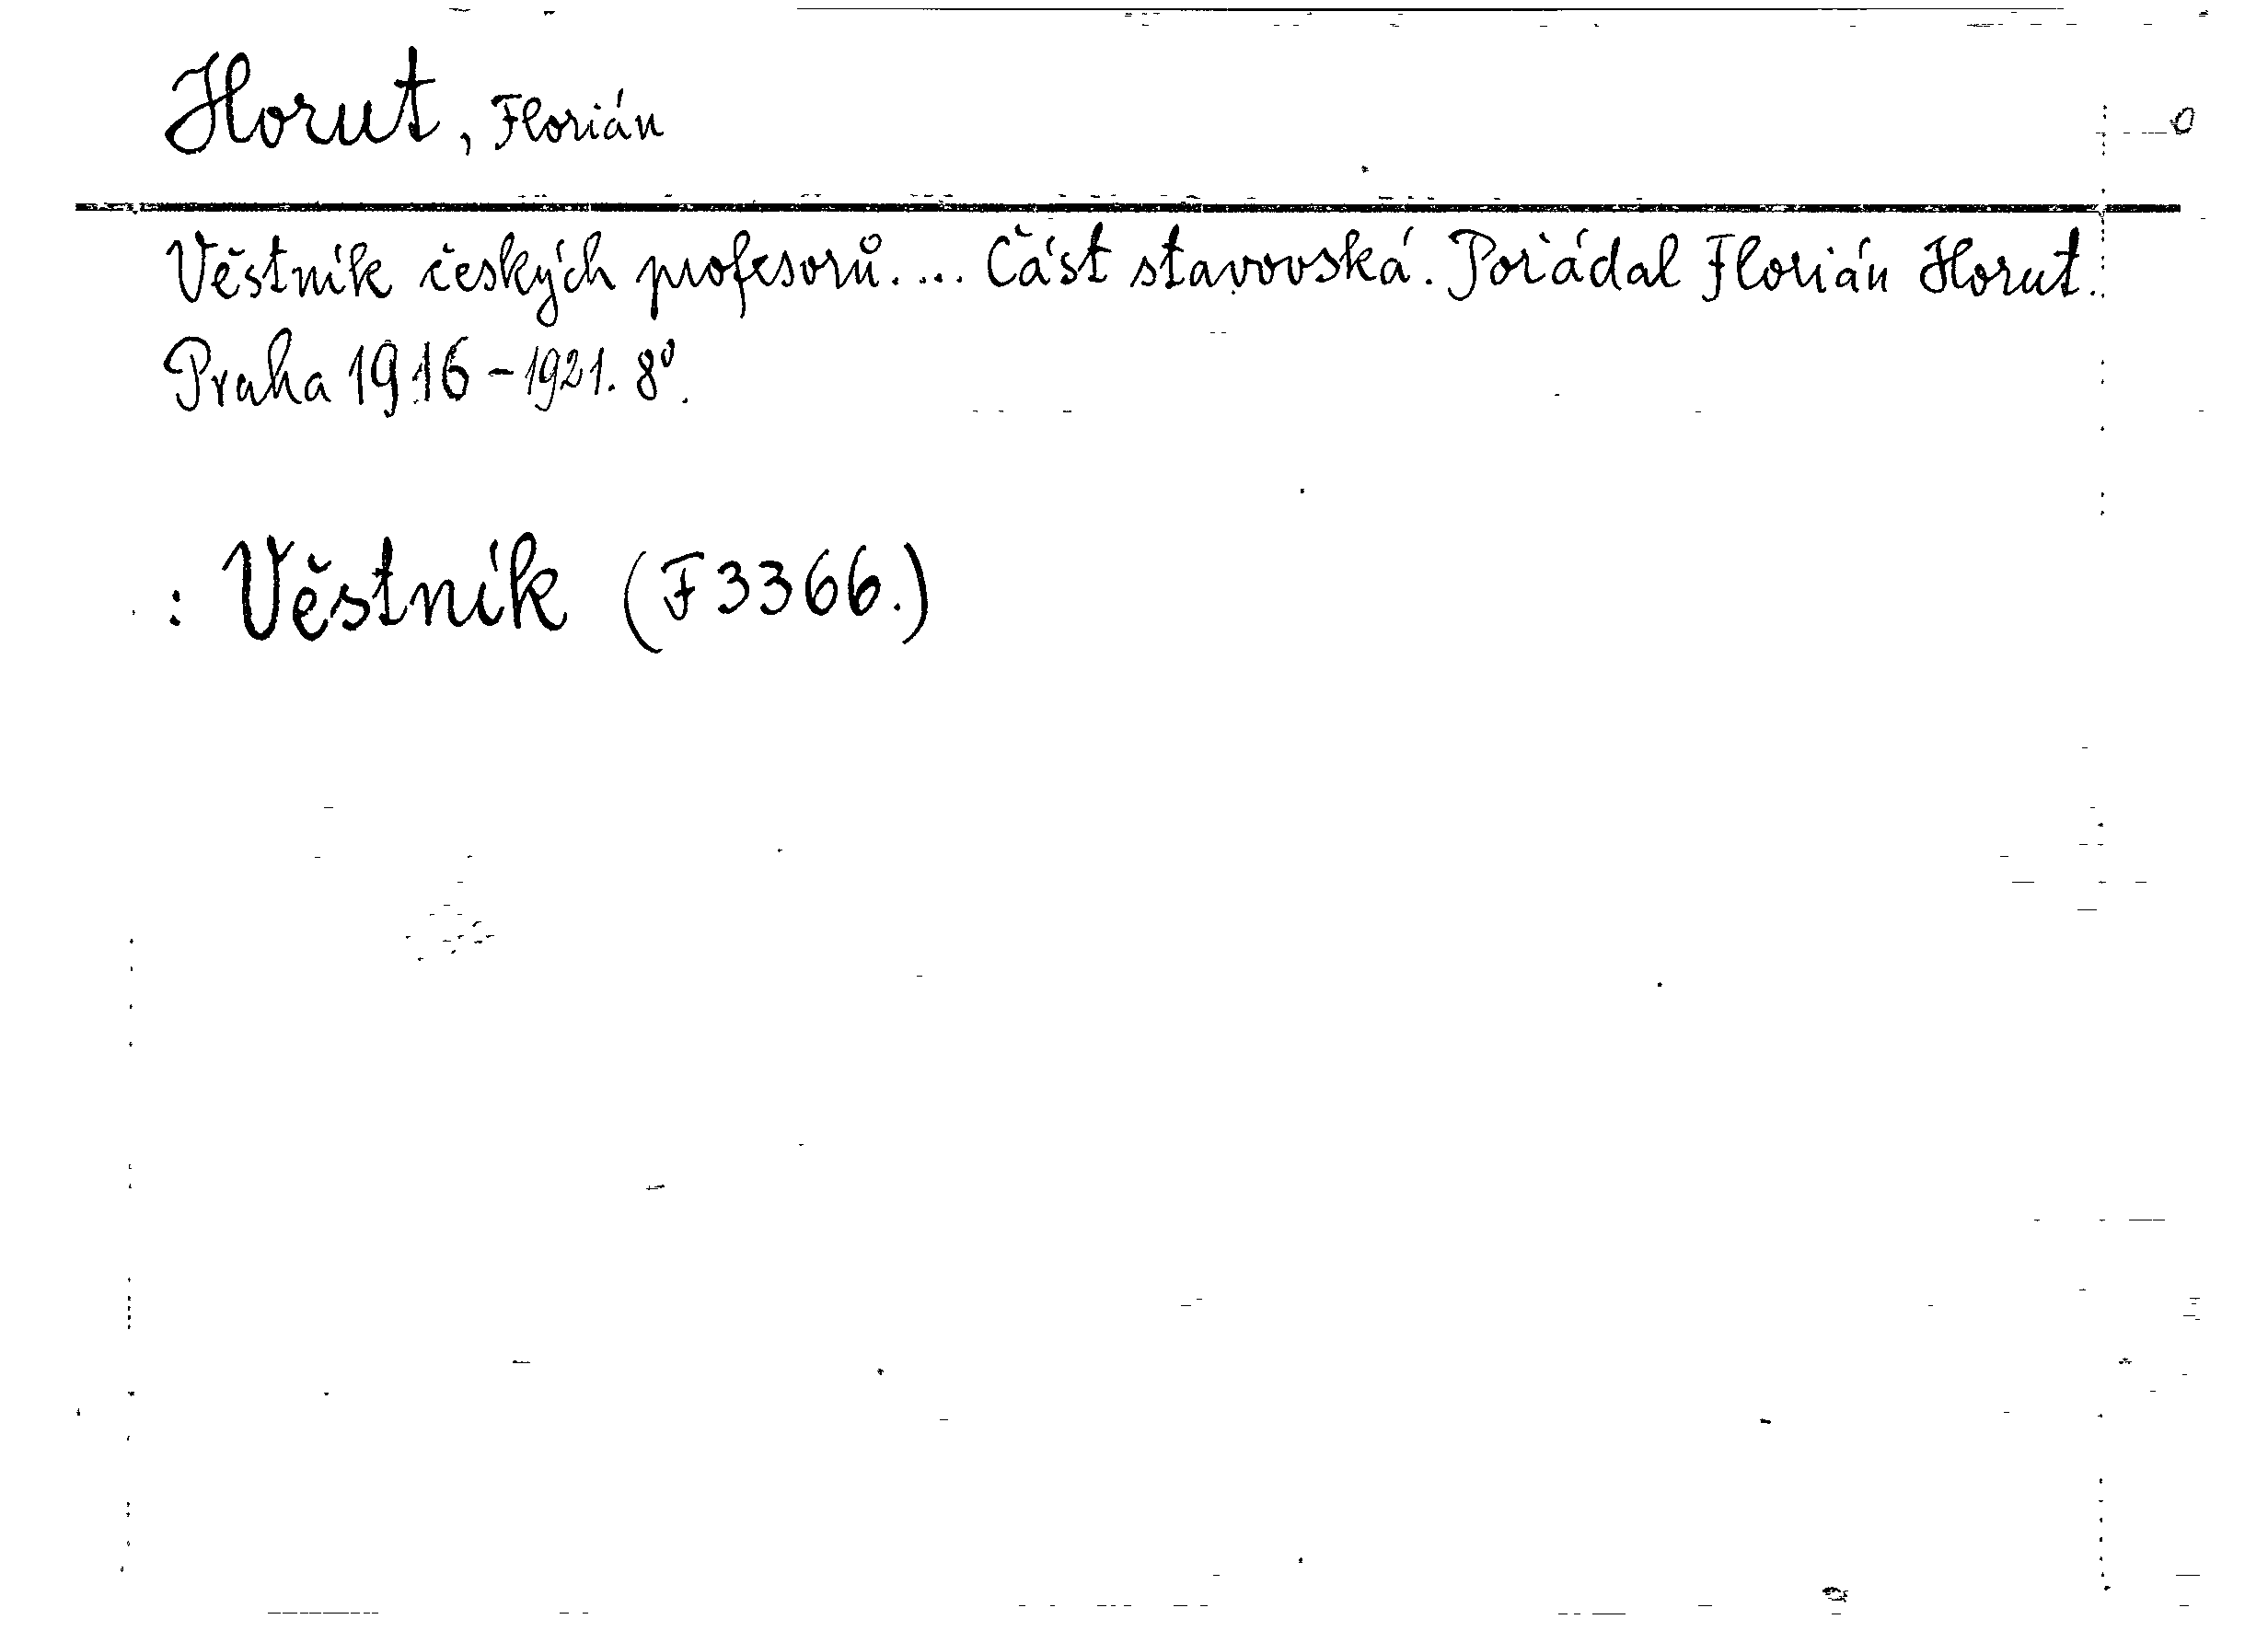 Horut, Florián
Věstník českých profesorů.... Část stavovská. Pořádal Florián Horut.
Praha 1916-1921. 8⁰.
: Věstník (F 3366.)